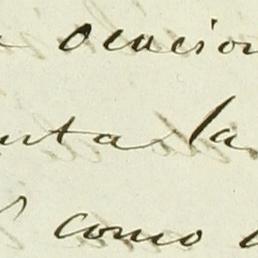 ocacion
nta la
como